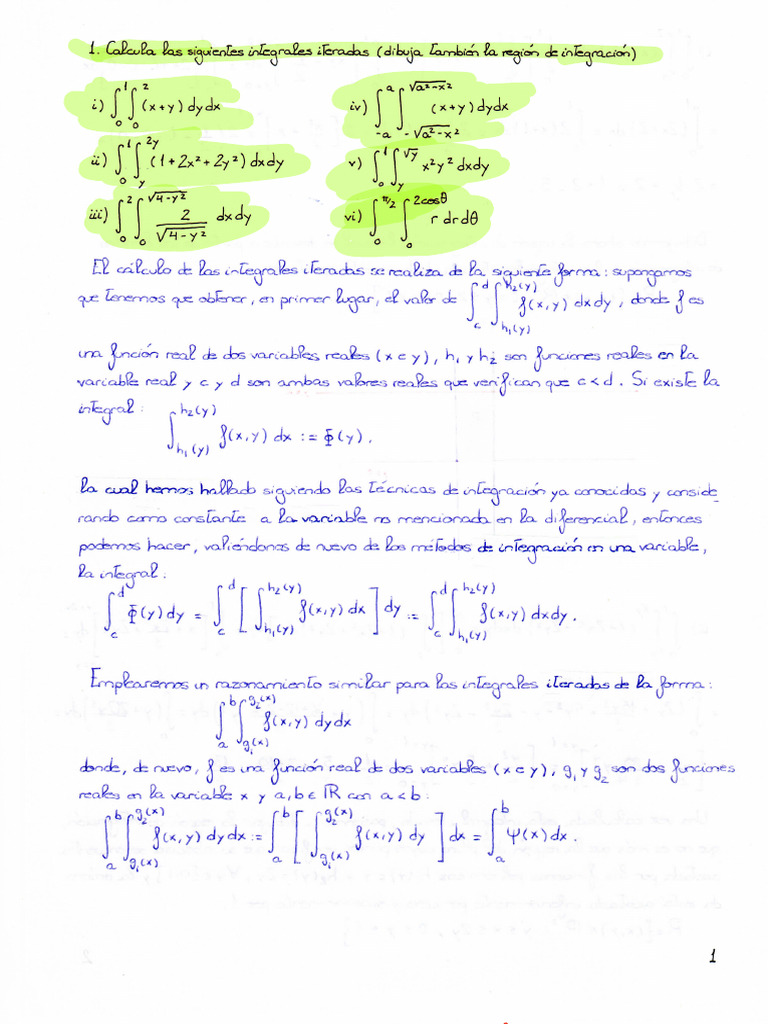 1. Calcula las siguientes integrales iteradas (dibuja también la región de integración)
i) ∫₀¹ ∫₀² (x+y) dy dx
iv) ∫₋ₐᵃ ∫_{-√(a²-x²)}^{√(a²-x²)} (x+y) dy dx
ii) ∫₀¹ ∫_y^{2y} (1+2x²+2y²) dx dy
v) ∫₀¹ ∫_y^{√y} x²y² dx dy
iii) ∫₀² ∫₀^{√(4-y²)} 2/√(4-y²) dx dy
vi) ∫₀^{π/2} ∫₀^{2cosθ} r dr dθ
El cálculo de las integrales iteradas se realiza de la siguiente forma: supongamos
que tenemos que obtener, en primer lugar, el valor de ∫_c^d ∫_{h₁(y)}^{h₂(y)} f(x,y) dx dy, donde f es
una función real de dos variables reales (x e y), h₁ y h₂ son funciones reales en la
variable real y c y d son ambas valores reales que verifican que c<d. Si existe la
integral:
∫_{h₁(y)}^{h₂(y)} f(x,y) dx := Φ(y).
la cual hemos hallado siguiendo las técnicas de integración ya conocidas y conside
rando como constante a la variable no mencionada en la diferencial, entonces
podemos hacer, valiéndonos de nuevo de los métodos de integración en una variable,
la integral:
∫_c^d Φ(y) dy = ∫_c^d [ ∫_{h₁(y)}^{h₂(y)} f(x,y) dx ] dy := ∫_c^d ∫_{h₁(y)}^{h₂(y)} f(x,y) dx dy.
Emplearemos un razonamiento similar para las integrales iteradas de la forma:
∫_a^b ∫_{g₁(x)}^{g₂(x)} f(x,y) dy dx
donde, de nuevo, f es una función real de dos variables (x e y), g₁ y g₂ son dos funciones
reales en la variable x y a,b ∈ ℝ con a<b:
∫_a^b ∫_{g₁(x)}^{g₂(x)} f(x,y) dy dx := ∫_a^b [ ∫_{g₁(x)}^{g₂(x)} f(x,y) dy ] dx = ∫_a^b Ψ(x) dx.
1